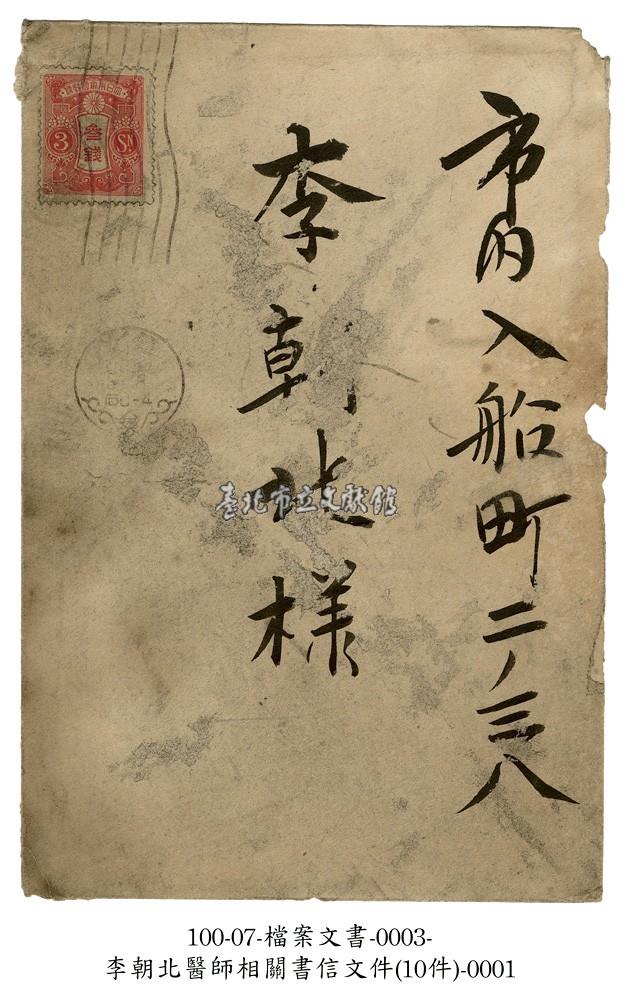 市内入船町二ノ三八
李朝北様
3
Sn
参銭
臺北市立文獻館
100-07-檔案文書-0003-
李朝北醫師相關書信文件(10件)-0001